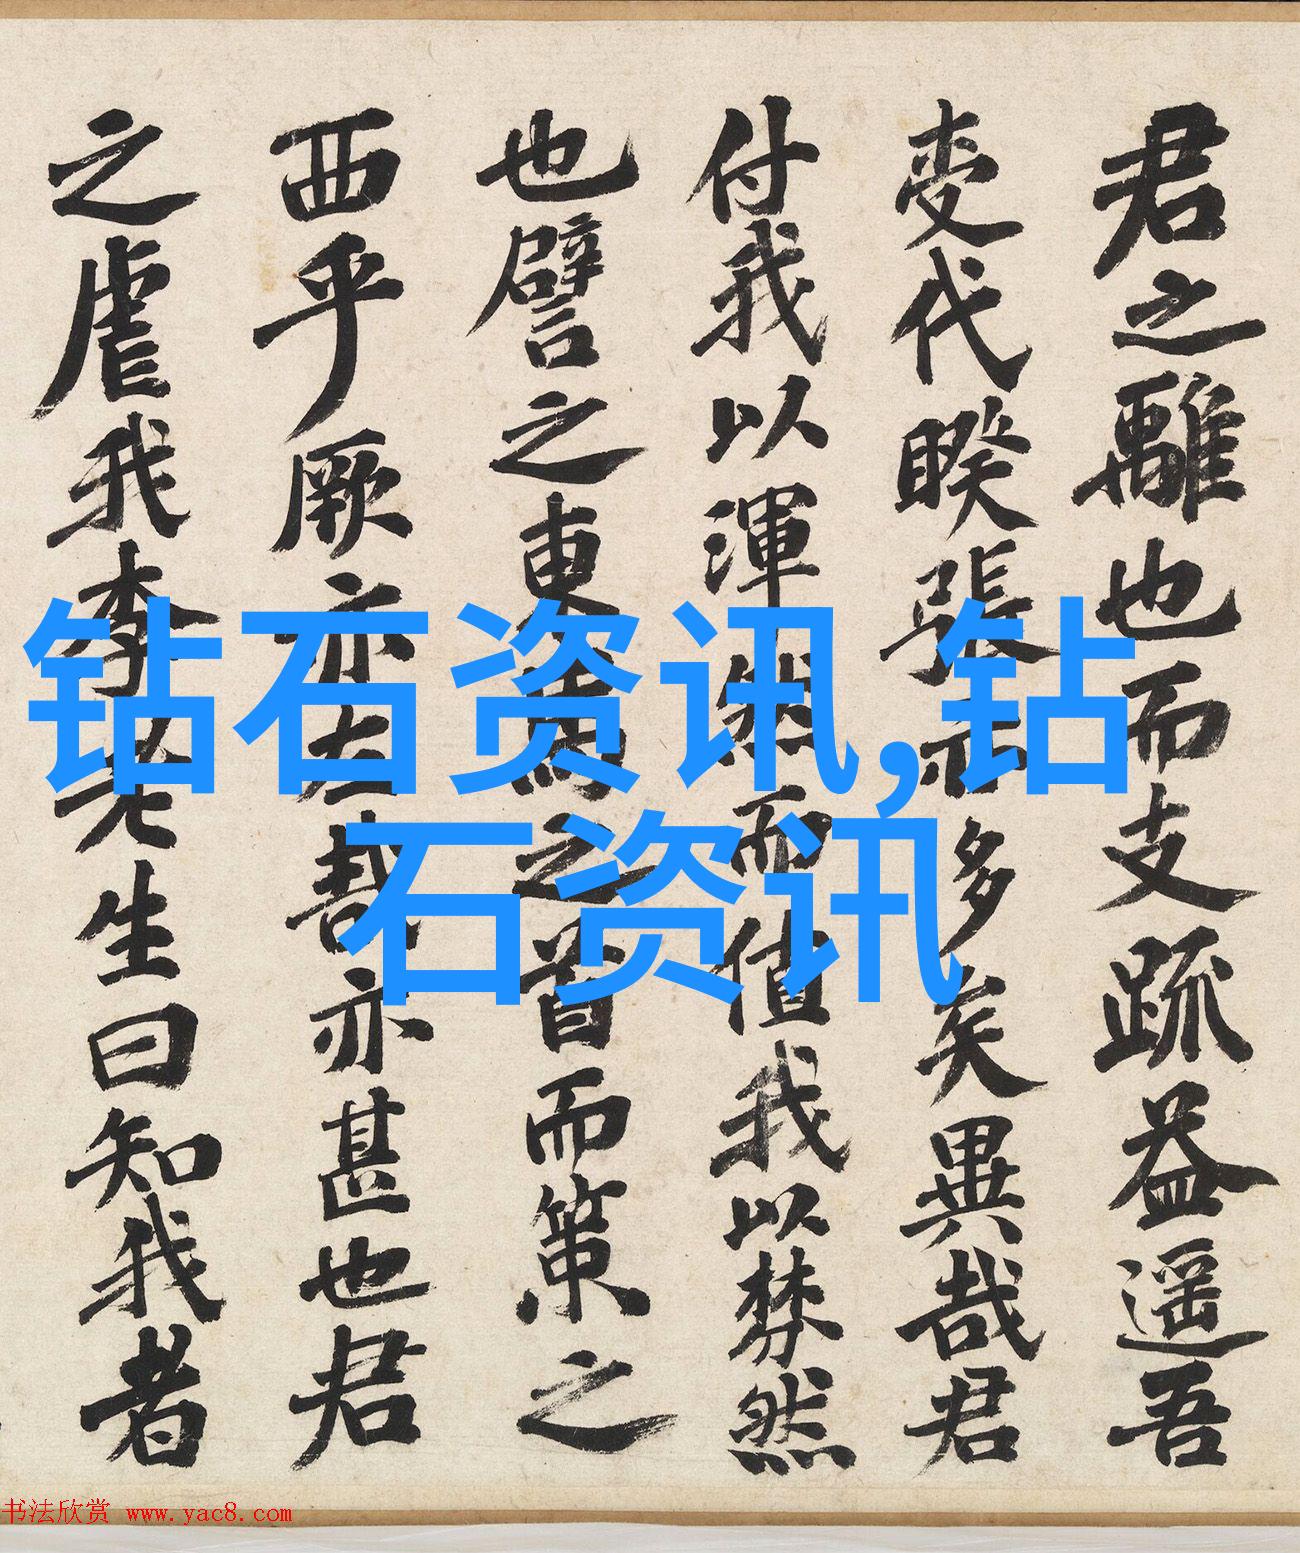 君之離也而支疏益遥吾
变代睽張示多矣異哉君
付我以渾然而值我以棼然
也譬之東馬之首而策之
西乎厥亦左哉亦甚也君
之虐我李老生曰知我者
钻石资讯,钻
石资讯
书法欣赏 www.yac8.com